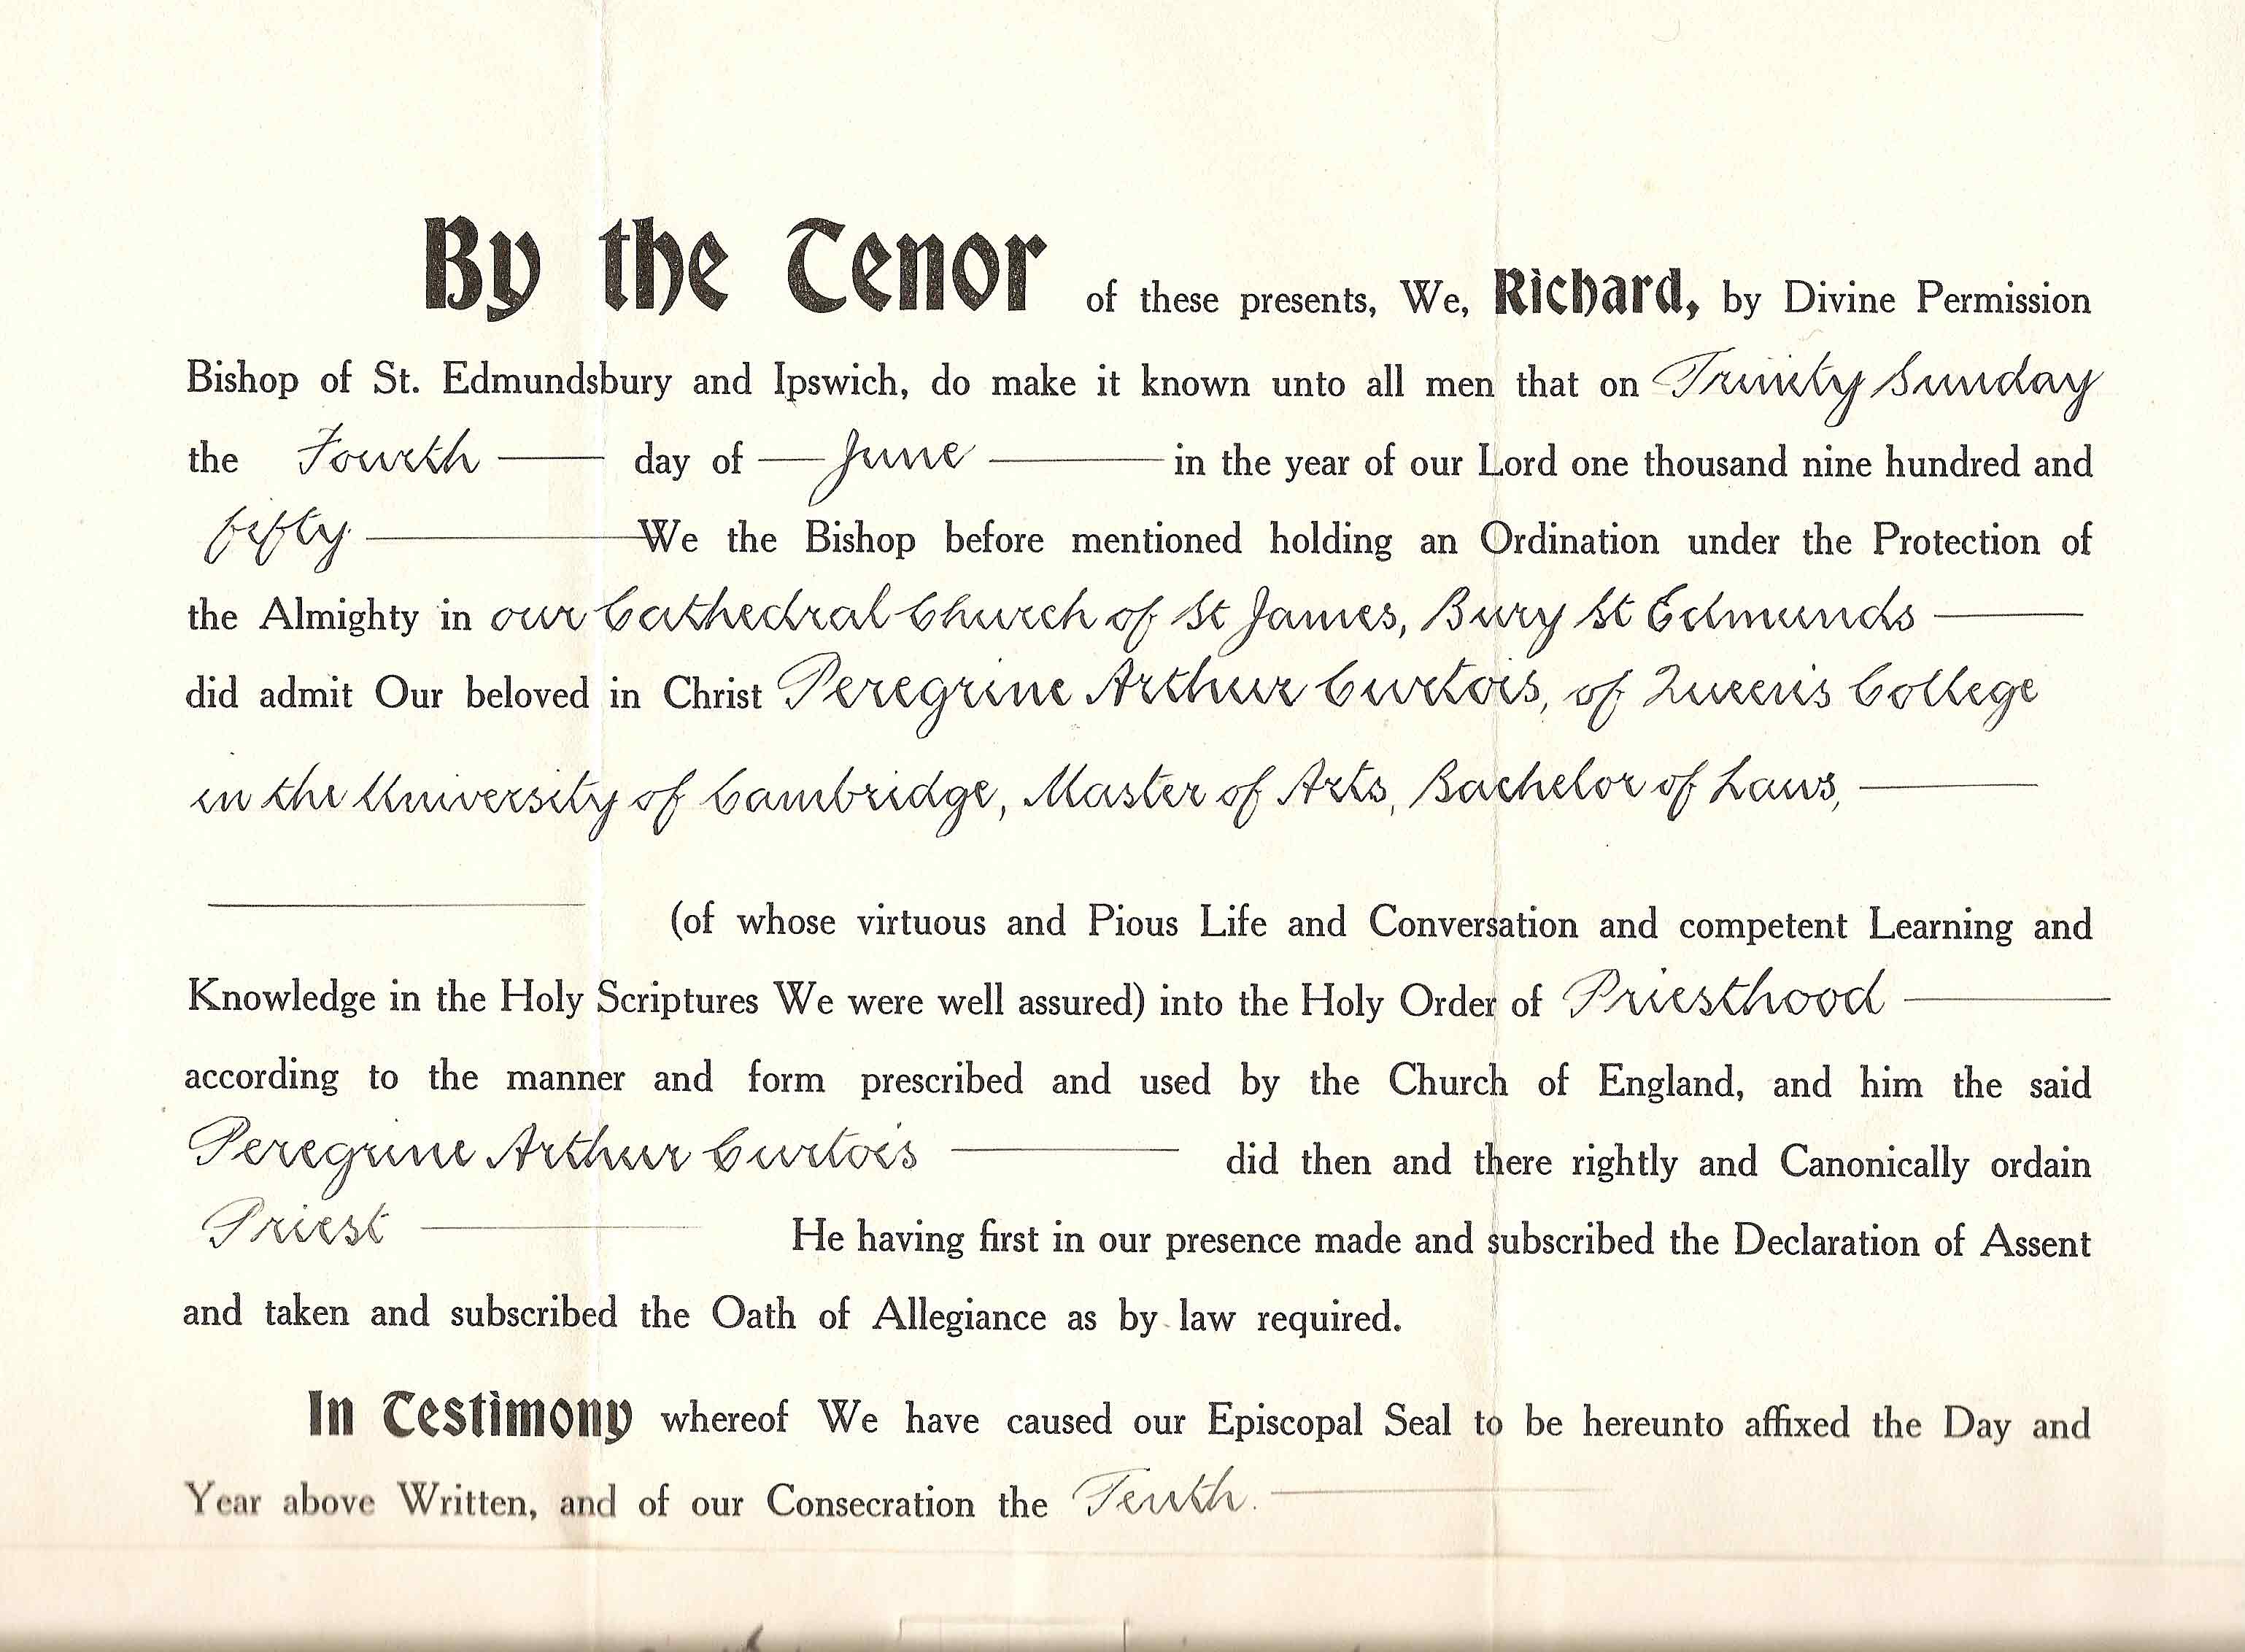 By the Tenor of these presents, We, Richard, by Divine Permission
Bishop of St. Edmundsbury and Ipswich, do make it known unto all men that on Trinity Sunday
the Fourth day of June in the year of our Lord one thousand nine hundred and
fifty We the Bishop before mentioned holding an Ordination under the Protection of
the Almighty in our Cathedral Church of St James, Bury St Edmunds
did admit Our beloved in Christ Peregrine Arthur Curtois, of Queen's College
in the University of Cambridge, Master of Arts, Bachelor of Laws,
(of whose virtuous and Pious Life and Conversation and competent Learning and
Knowledge in the Holy Scriptures We were well assured) into the Holy Order of Priesthood
according to the manner and form prescribed and used by the Church of England, and him the said
Peregrine Arthur Curtois did then and there rightly and Canonically ordain
Priest He having first in our presence made and subscribed the Declaration of Assent
and taken and subscribed the Oath of Allegiance as by law required.
In Testimony whereof We have caused our Episcopal Seal to be hereunto affixed the Day and
Year above Written, and of our Consecration the Tenth.